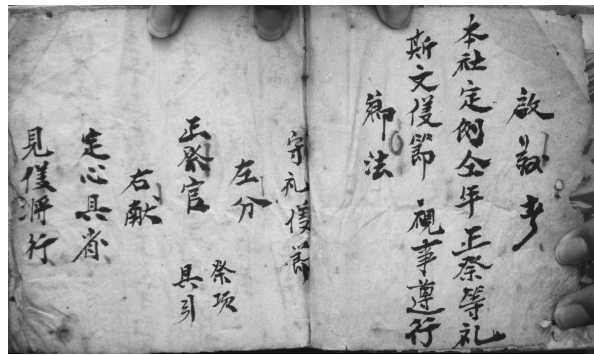 啟敬者
本社定例全年正祭等礼
斯文仪節 視事遵行
節法
守礼仪節
左分
祭项
正祭官
具引
右献
定心具省
見仪將行